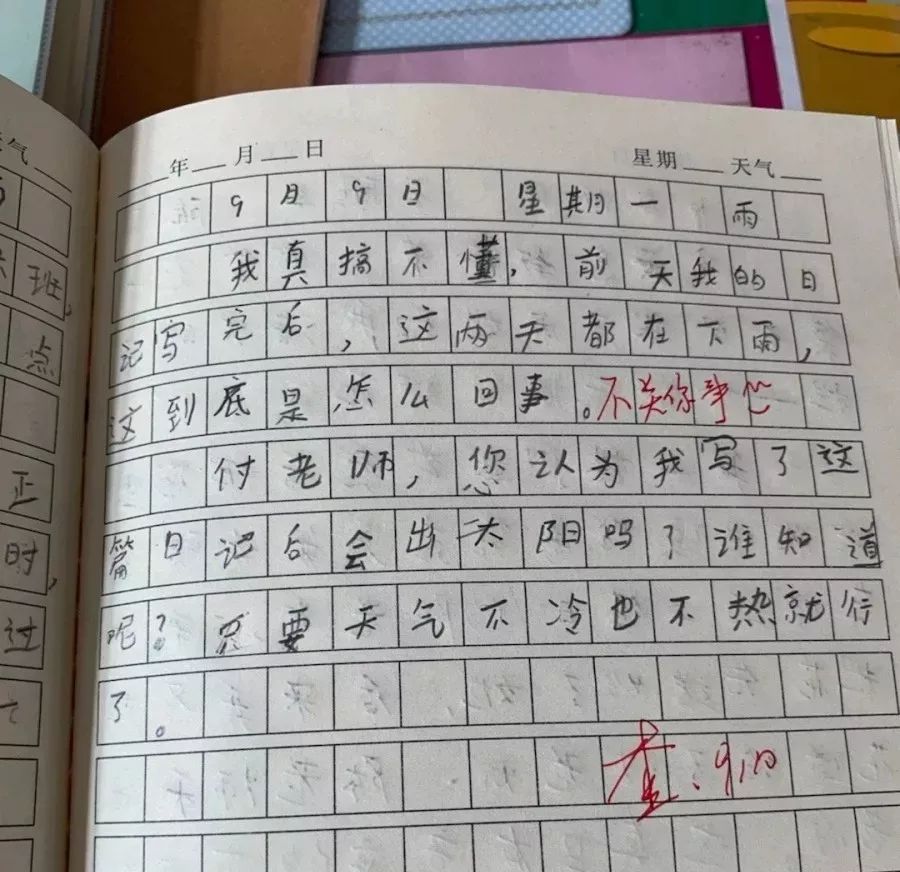 天气
年 月 日 星期 天气
9月9日 星期一 雨
我真搞不懂,前天我的日
记写完后,这两天都在下雨,
这到底是怎么回事。不关你事
付老师,您认为我写了这
篇日记后会出太阳吗了谁知道
呢?只要天气不冷也不热就行
了。
查.9.10
班,
点
正
时,
过